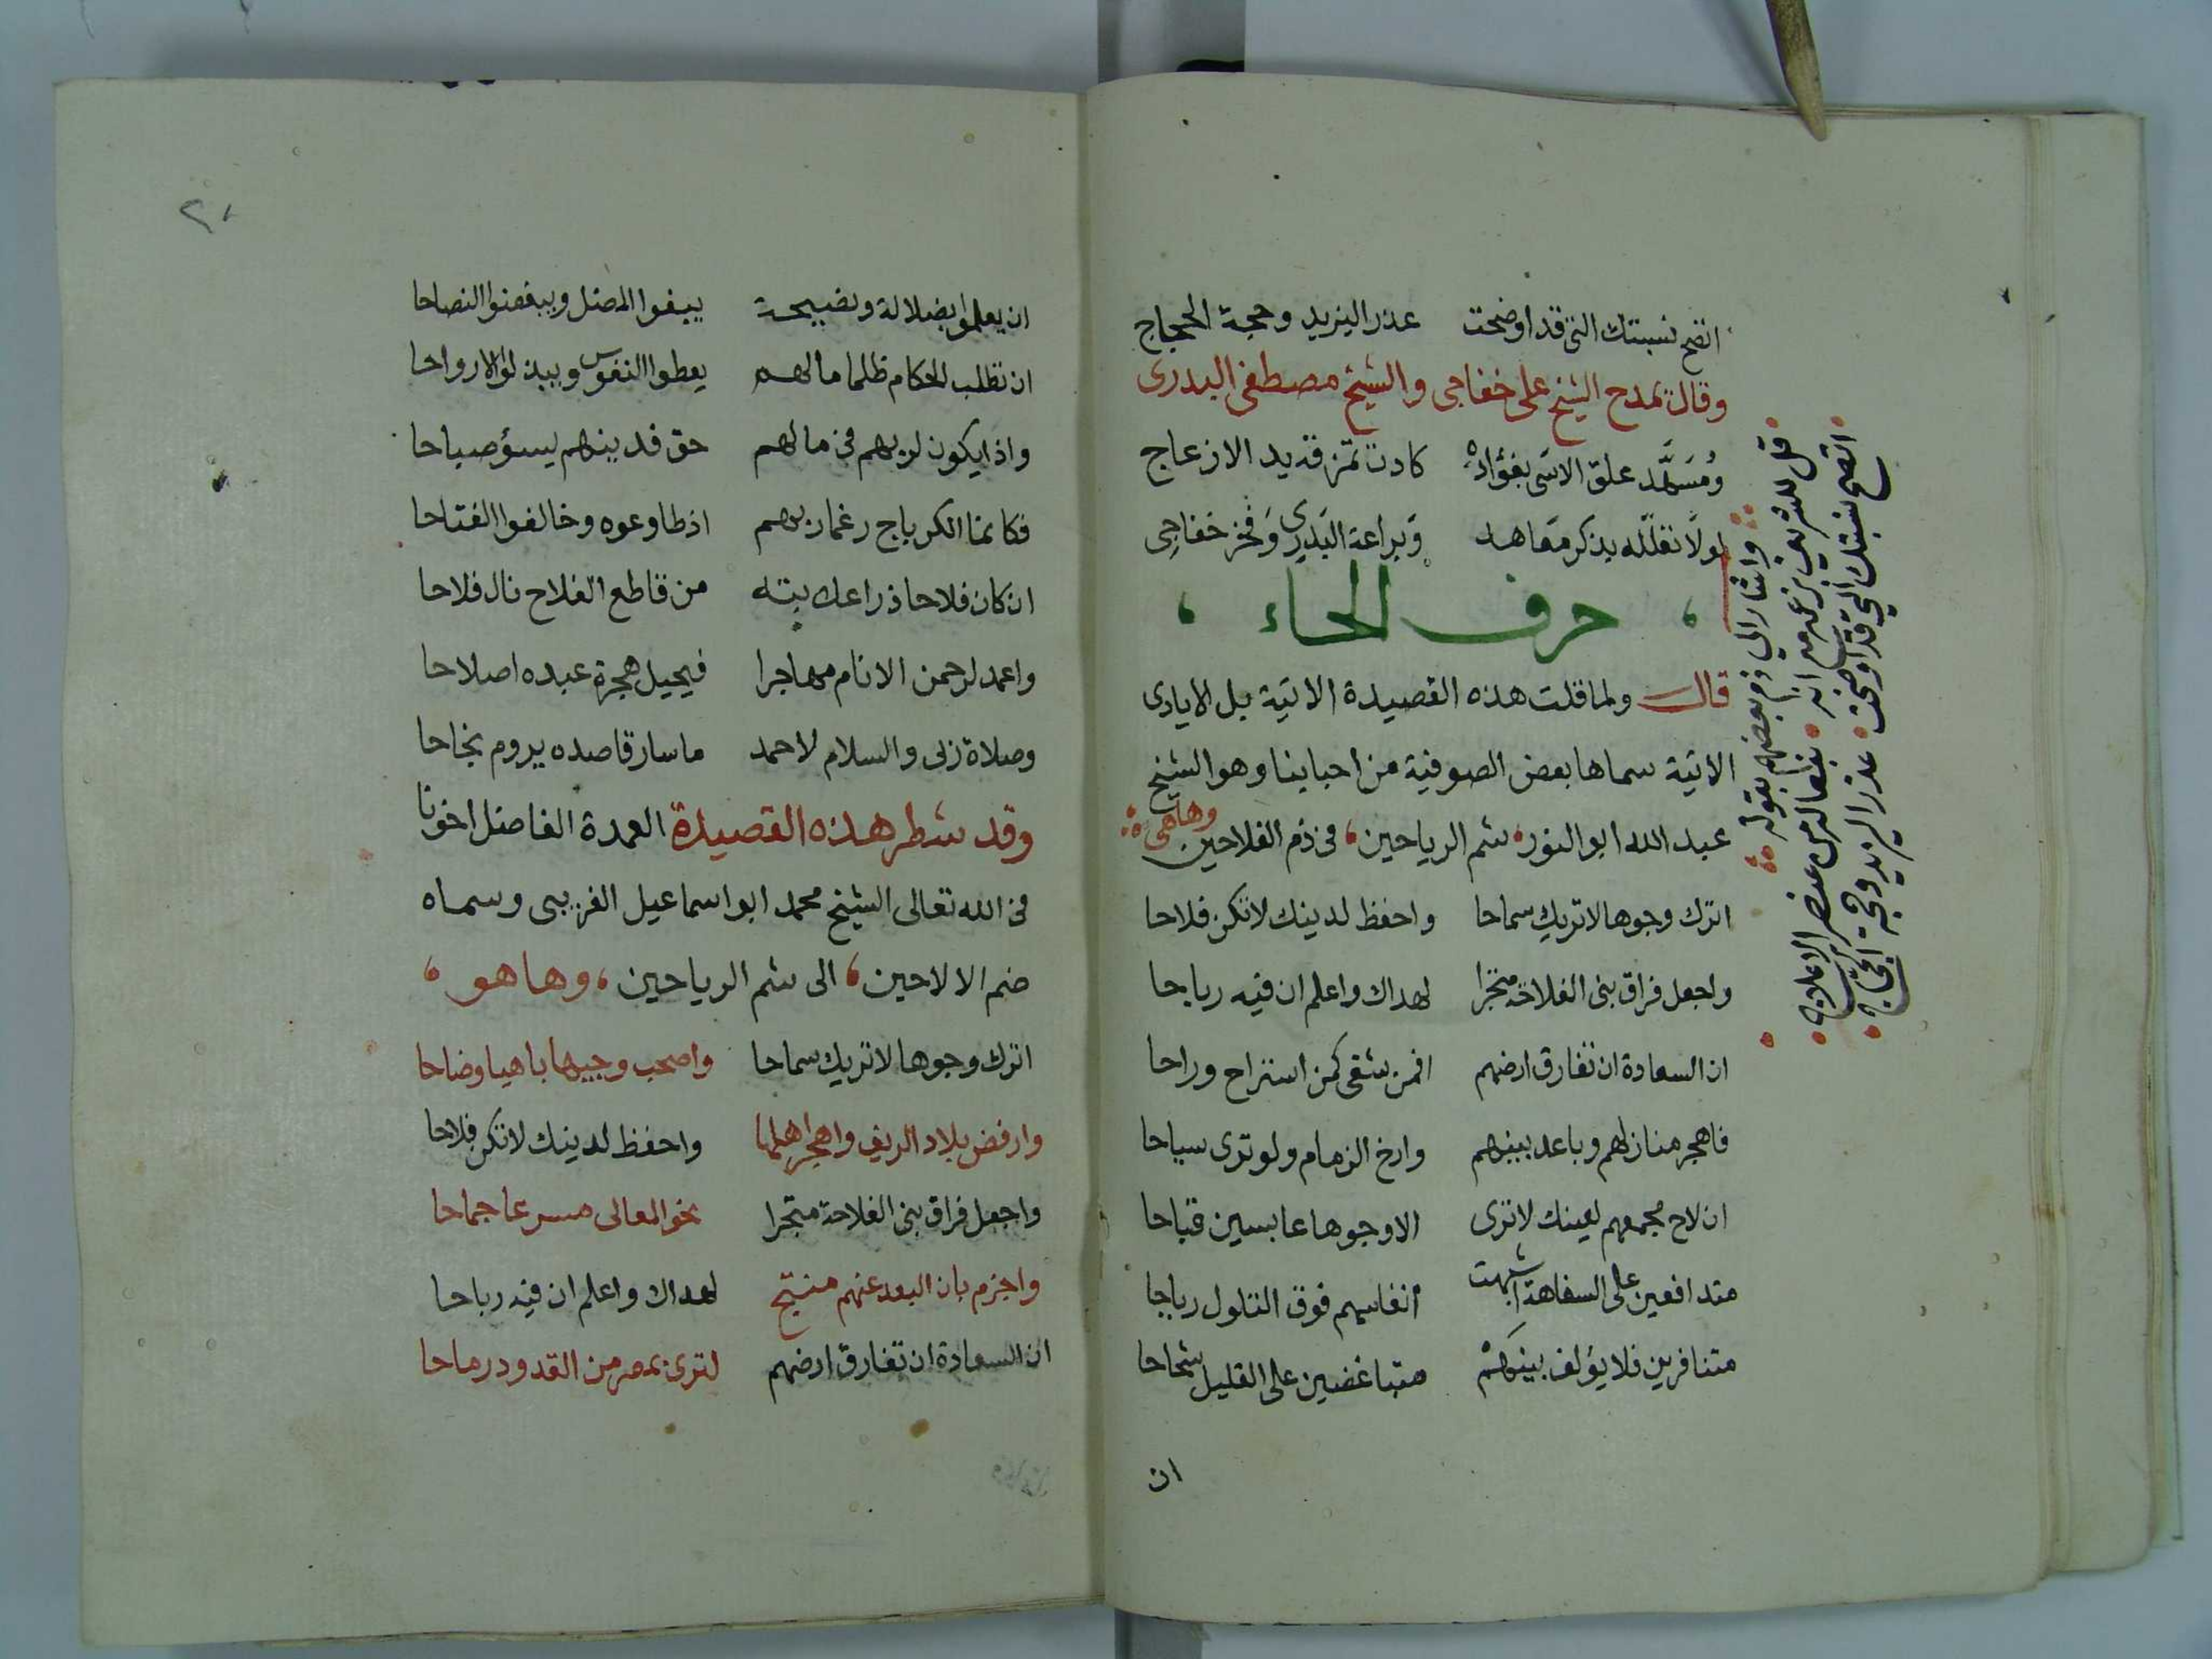 اتضح نسبتك التى قد اوضحت عذر اليزيد وحجة الحجاج
وقال يمدح الشيخ على خفاجى والشيخ مصطفى البدرى
ومسهد علق الاسى بفؤاده كادت تمزقه يد الازعاج
لولا تعلله بذكر معاهد وبراعة البدرى وفخر خفاجى
حرف الحاء
قال ولما قلت هذه القصيدة الاتية بل الايادى
الاتية سماها بعض الصوفية من احبابنا وهو الشيخ
عبد الله ابو النور شم الرياحين فى ذم الفلاحين وهاهى
اترك وجوها لا تريك سماحا واحفظ لدينك لا تكن فلاحا
واجعل فراق بنى الفلاحة متجرا لهداك واعلم ان فيه رباحا
ان السعادة ان تفارق ارضهم افمن شقى كمن استراح وراحا
فاهجر منازلهم وباعد بينهم وارخ الزمام ولو ترى سباحا
ان لاح مجمعهم لعينك لا ترى الا وجوها عابسين قباحا
متدافعين على السفاهة اشبهت انفاسهم فوق التلول رياحا
متنافرين فلا يؤلف بينهم متباغضين على القليل شحاحا
ان
واشار الى ذم بعضهم بقوله
قل للشريف بزعمه من انه
اتضح نسبتك التى قد اوضحت عذر اليزيد وحجة الحجاج
٢٠
ان يعلموا بضلالة ونصيحة يبغوا المضل ويبغضوا النصاحا
ان تطلب الحكام ظلما مالهم يعطوا النفوس ويبذلوا الارواحا
واذا يكون لربهم فى مالهم حق فدينهم يسؤ صباحا
فكانما الكرباج رغما ربهم اذ طاوعوه وخالفوا الفتاحا
ان كان فلاحا ذراعك بته من قاطع الفلاح نال فلاحا
واعمد لرحمن الانام مهاجرا فيحيل هجرة عبده اصلاحا
وصلاة ربى والسلام لاحمد ما سار قاصده يروم نجاحا
وقد شطر هذه القصيدة العمدة الفاضل اخونا
فى الله تعالى الشيخ محمد ابو اسماعيل الغريبى وسماه
ضم الالاحين الى شم الرياحين وها هو
اترك وجوها لا تريك سماحا واصحب وجيها باهيا وضاحا
وارفض بلاد الريف واهجر اهلها واحفظ لدينك لا تكن فلاحا
واجعل فراق بنى الفلاحة متجرا نحو المعالى مسرعا جماحا
واجزم بان البعد عنهم منتج لهداك واعلم ان فيه رباحا
ان السعادة ان تفارق ارضهم لترى بمصر من القدود رماحا